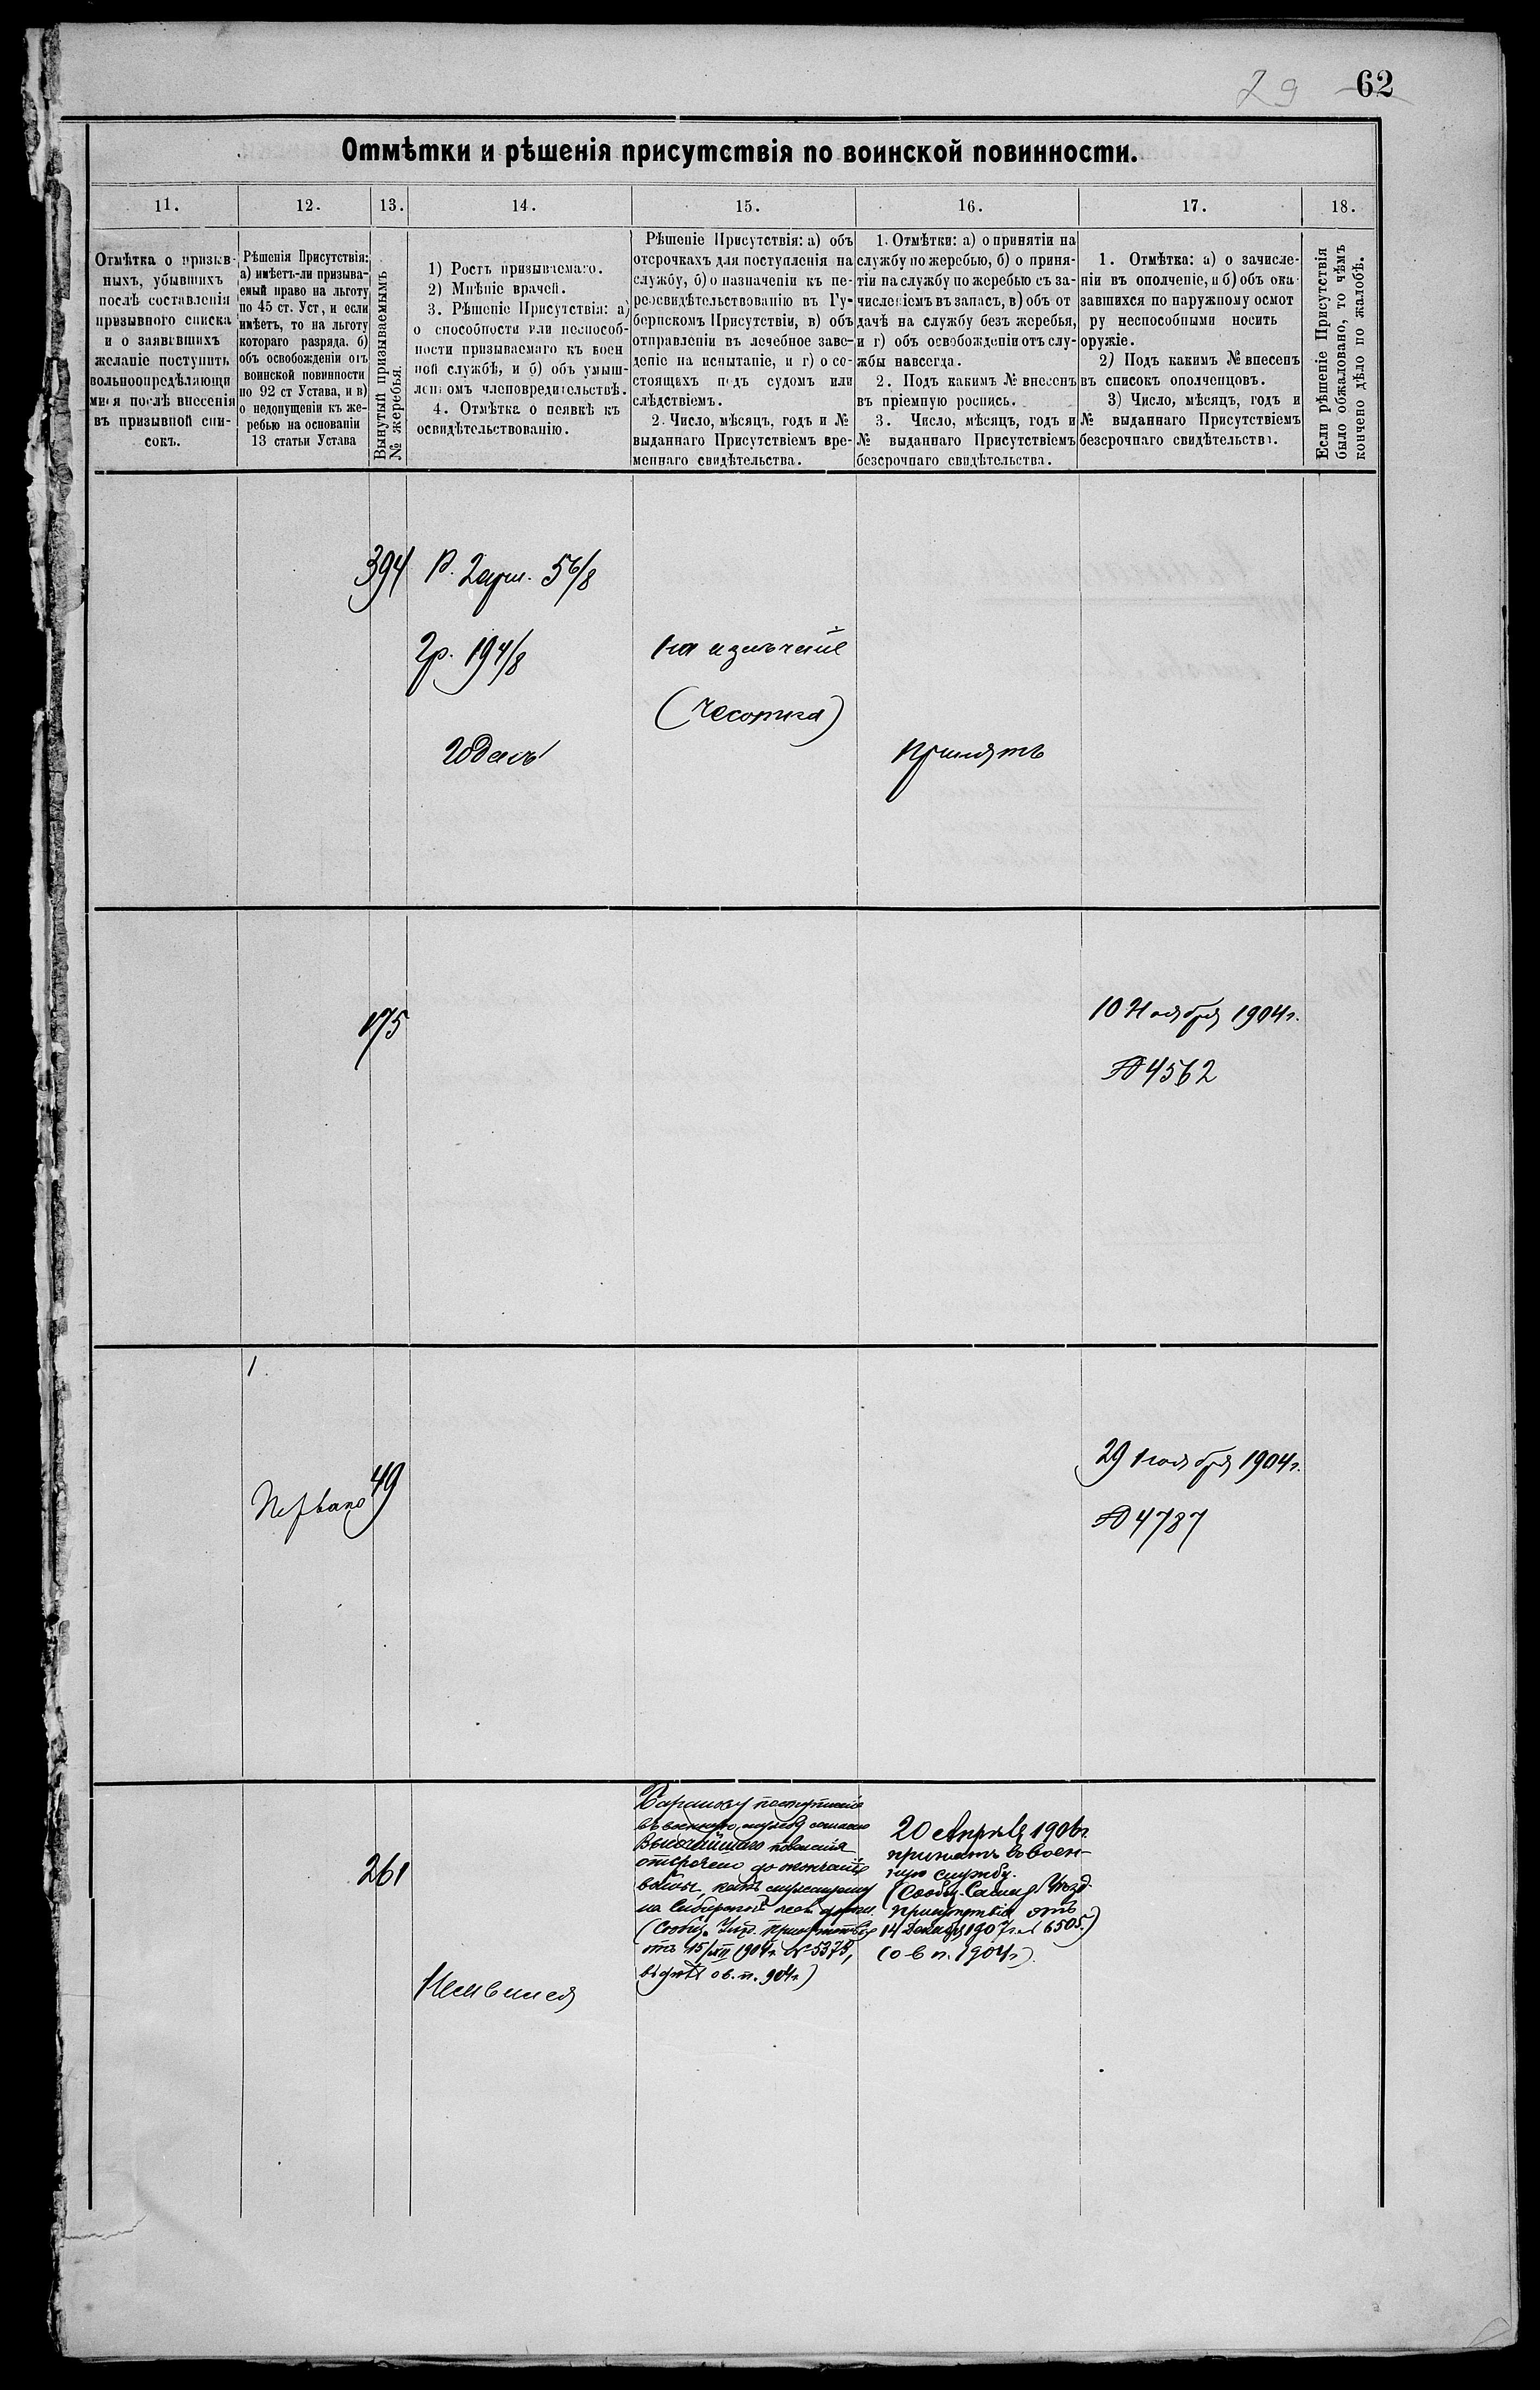 29 62
Отмѣтки и рѣшенія присутствія по воинской повинности.
11. 12. 13. 14. 15. 16. 17. 18.
Отмѣтка о призыв-
ныхъ, убывшихъ
послѣ составленія
призывного списка
и о заявившихъ
желаніе поступить
вольноопредѣляющи
мися послѣ внесенія
въ призывной спи-
сокъ.
Рѣшенія Присутствія:
а) имѣетъ-ли призыва-
емый право на льготу
по 45 ст. Уст, и если
имѣетъ, то на льготу
котораго разряда. б)
объ освобожденіи отъ
воинской повинности
по 92 ст Устава, и в)
о недопущеніи къ же-
ребью на основаніи
13 статьи Устава
Вынутый призываемымъ
№ жеребья.
1) Ростъ призываемаго.
2) Мнѣніе врачей.
3. Рѣшеніе Присутствія: а)
о способности или неспособ-
ности призываемаго къ воен
ной службѣ, и б) объ умыш-
ленномъ членовредительствѣ.
4. Отмѣтка о неявкѣ къ
освидѣтельствованію.
Рѣшеніе Присутствія: а) объ
отсрочкахъ для поступленія на
службу, б) о назначеніи къ пе-
реосвидѣтельствованію въ Гу-
бернскомъ Присутствіи, в) объ
отправленіи въ лечебное заве-
деніе на испытаніе, и г) о со-
стоящихъ подъ судомъ или
слѣдствіемъ.
2. Число, мѣсяцъ, годъ и №
выданнаго Присутствіемъ вре-
меннаго свидѣтельства.
1. Отмѣтки: а) о принятіи на
службу по жеребью, б) о приня-
тіи на службу по жеребью съ за-
численіемъ въ запасъ, в) объ от
дачѣ на службу безъ жеребья,
и г) объ освобожденіи отъ слу-
жбы навсегда.
2. Подъ какимъ № внесенъ
въ пріемную роспись.
3. Число, мѣсяцъ, годъ и
№ выданнаго Присутствіемъ
безсрочнаго свидѣтельства.
1. Отмѣтка: а) о зачисле-
ніи въ ополченіе, и б) объ ока
завшихся по наружному осмот
ру неспособными носить
оружіе.
2) Подъ какимъ № внесенъ
въ списокъ ополченцовъ.
3) Число, мѣсяцъ, годъ и
№ выданнаго Присутствіемъ
безсрочнаго свидѣтельства.
Если рѣшеніе Присутствія
было обжаловано, то чѣмъ
кончено дѣло по жалобѣ.
394 Р. 2арш. 5 6/8
Гр. 19 4/8
на излеченіе
(чесотка)
Годенъ
принятъ
175
10 Ноября 1904г.
№ 4562
1.
49
29 ноября 1904г.
№ 4787
261
неявился
поступленіе
въ военную службу согласно
Высочайшаго повеленія
отсрочено до окончанія
войны, какъ служащему
на Сибирской жел. дорогѣ.
(Сообщ. Уѣзд. Присутствія
отъ 15/XII 1904г. № 5373,
въ дѣлѣ о в. п. 904г.)
20 Апрѣля 1906г.
принятъ въ воен-
ную службу.
Уѣзд.
присутствія отъ
14 Декабря 1907г. № 6505.)
(о в п. 1904г.).